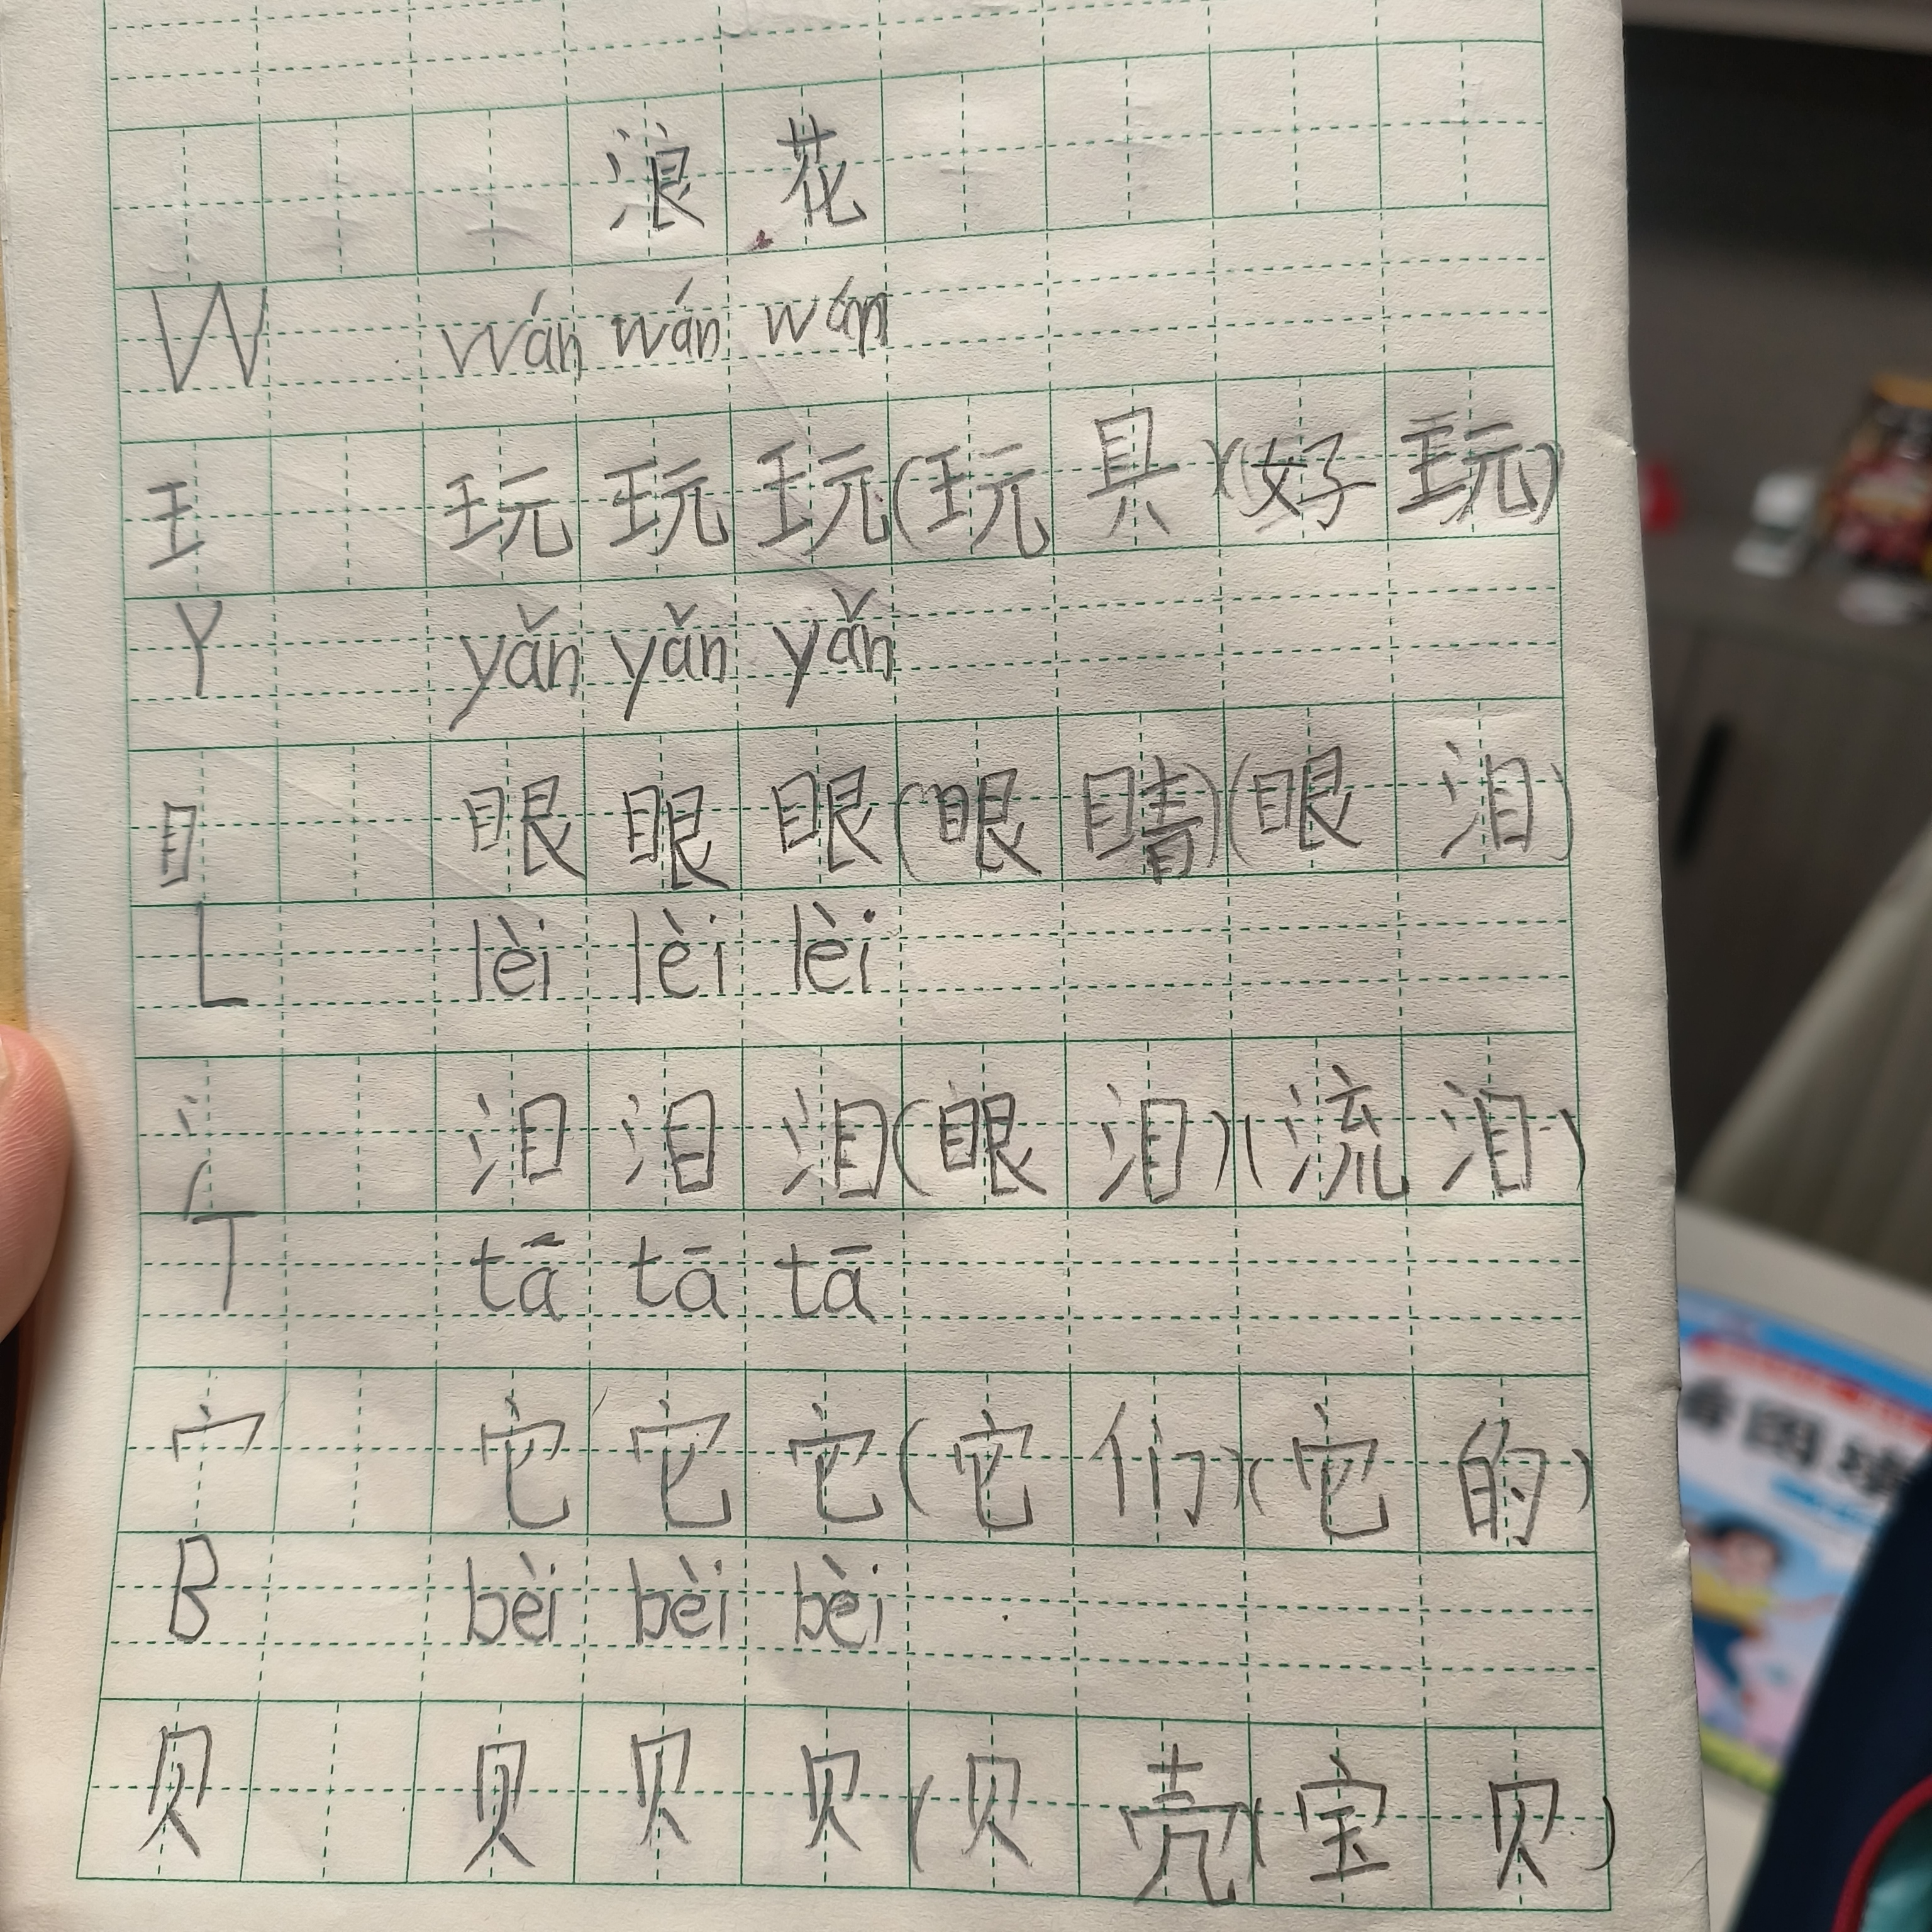 浪花
W wán wán wán
王 玩 玩 玩 (玩具) (好玩)
Y yǎn yǎn yǎn
目 眼 眼 眼 (眼睛) (眼泪)
L lèi lèi lèi
氵 泪 泪 泪 (眼泪) (流泪)
T tā tā tā
宀 它 它 它 (它们) (它的)
B bèi bèi bèi
贝 贝 贝 贝 (贝壳) (宝贝)